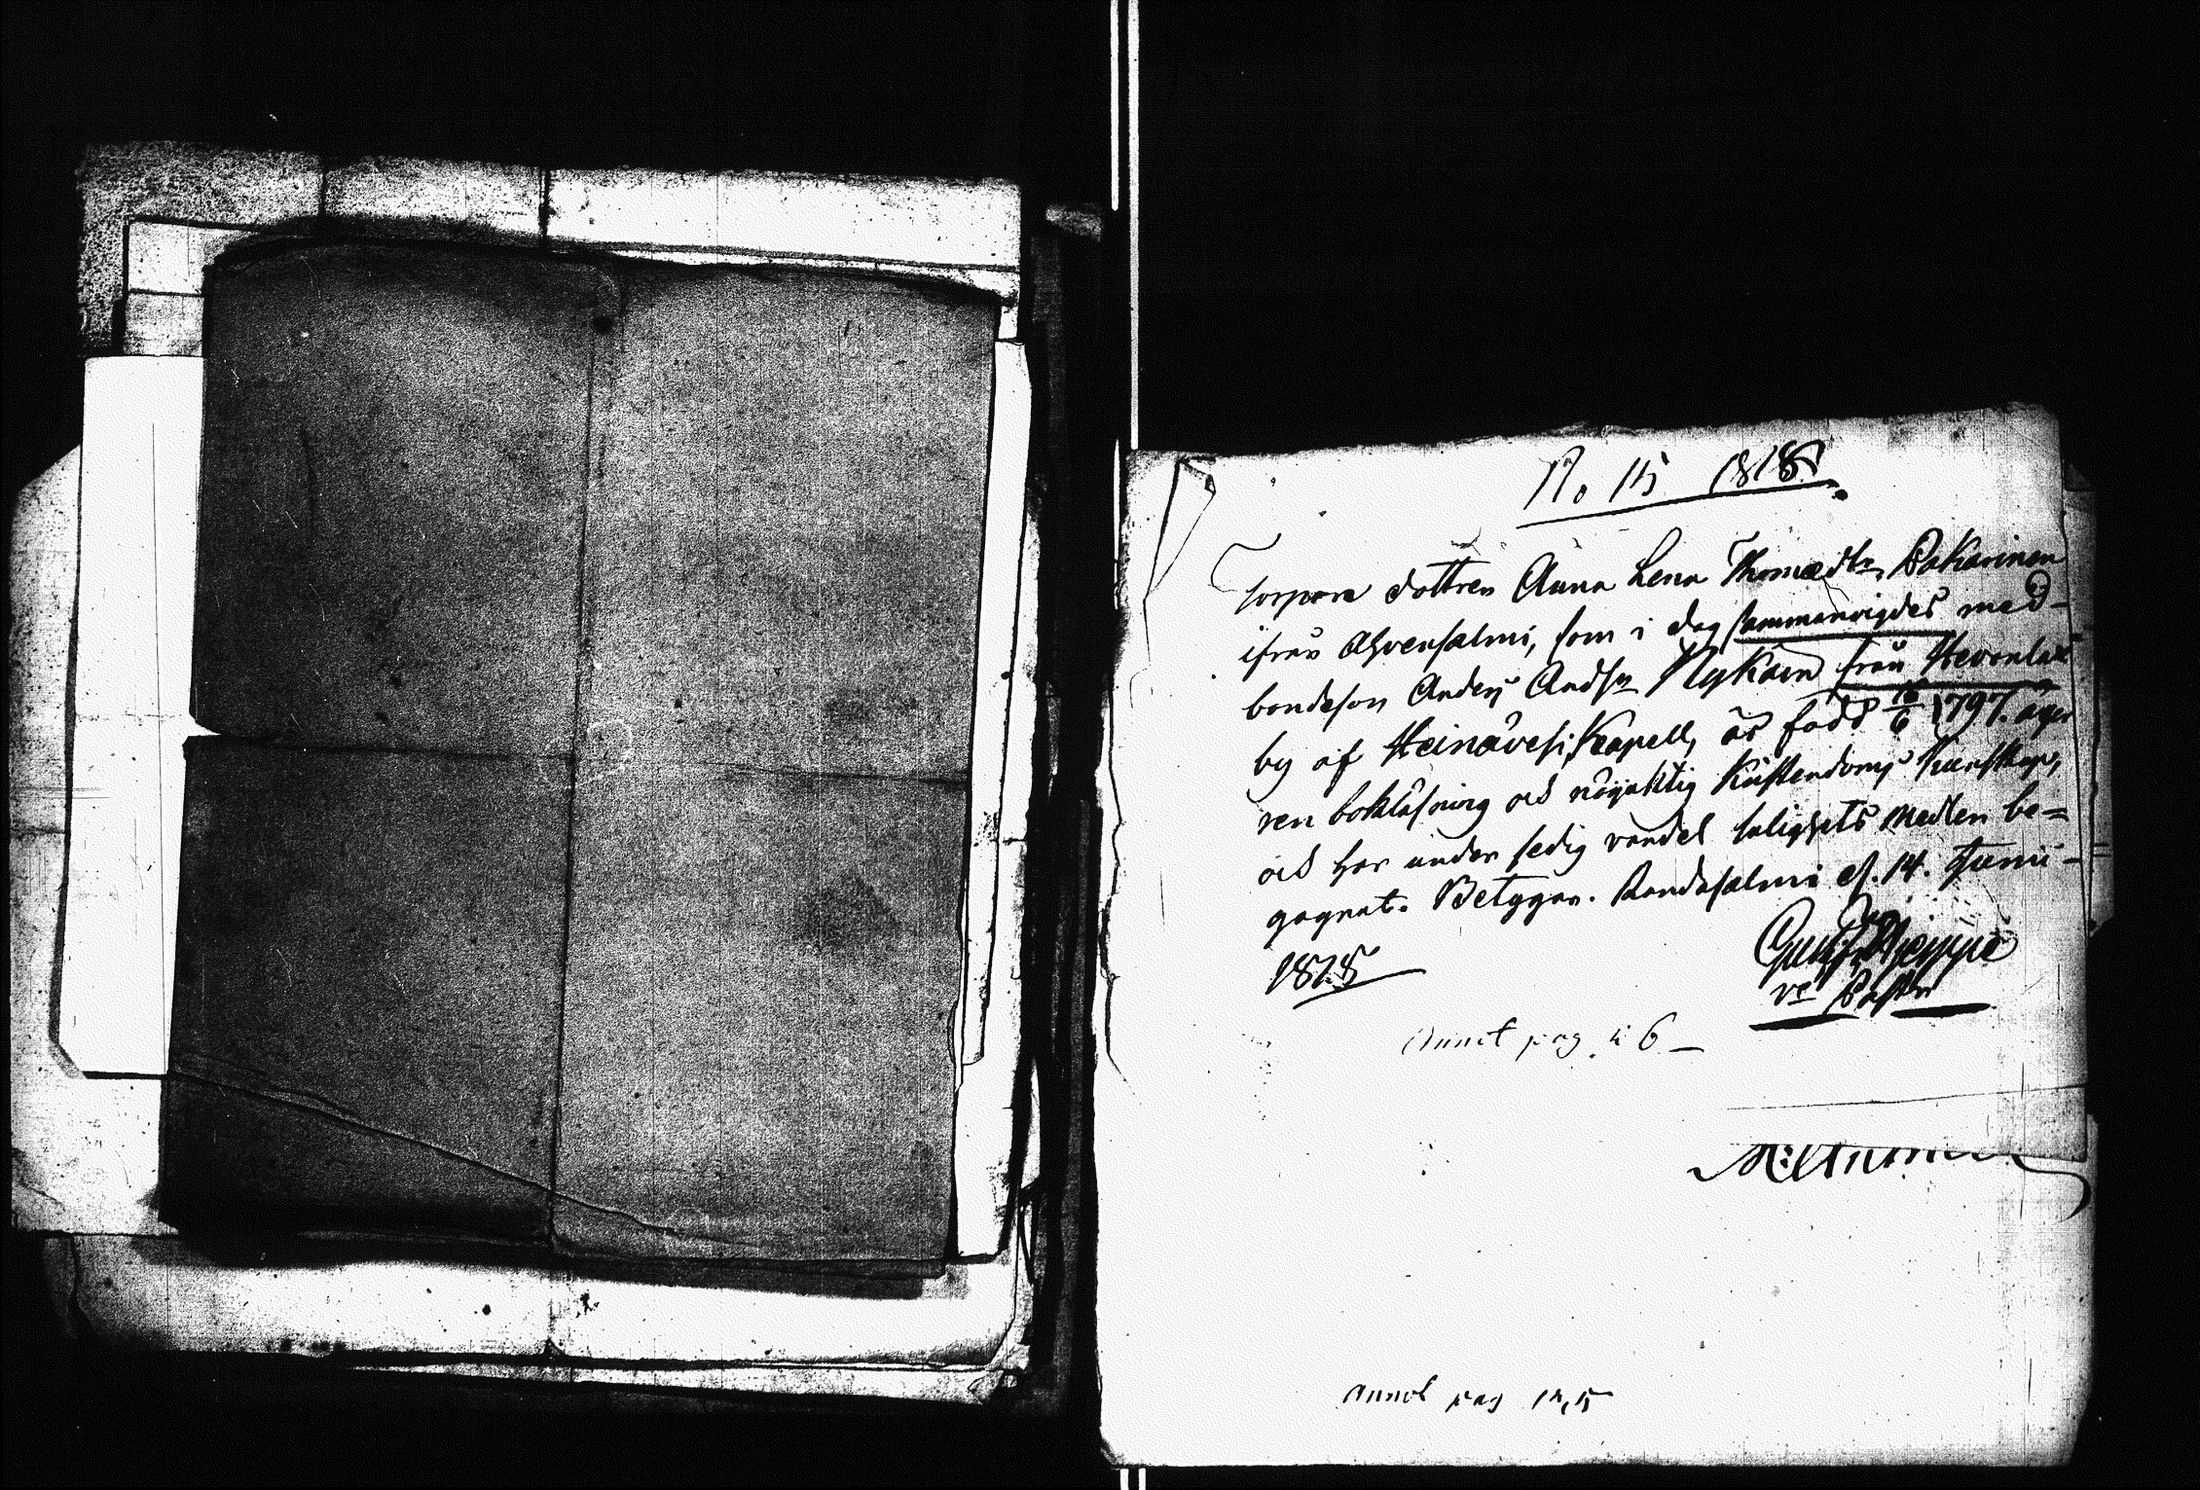 No 15 1818.
Torpare dottren Anna Lena Thomædtr. Pakarinen
ifrån Ahvensalmi, som i dag sammanvigdes med
bondeson Anders Andsn Nykäin från Hevonlax
by af Heinävesi Kapell, är född 16/6 1797. äger
ren bokläsning och nöjaktig Kristendoms Kunskap,
och har under sedig vandel salighets medlen be=
gagnat. Betygar. Randasalmi d. 14. Junii
1818
Gust.
vc Pastor
Annot pag 6
Annot pag